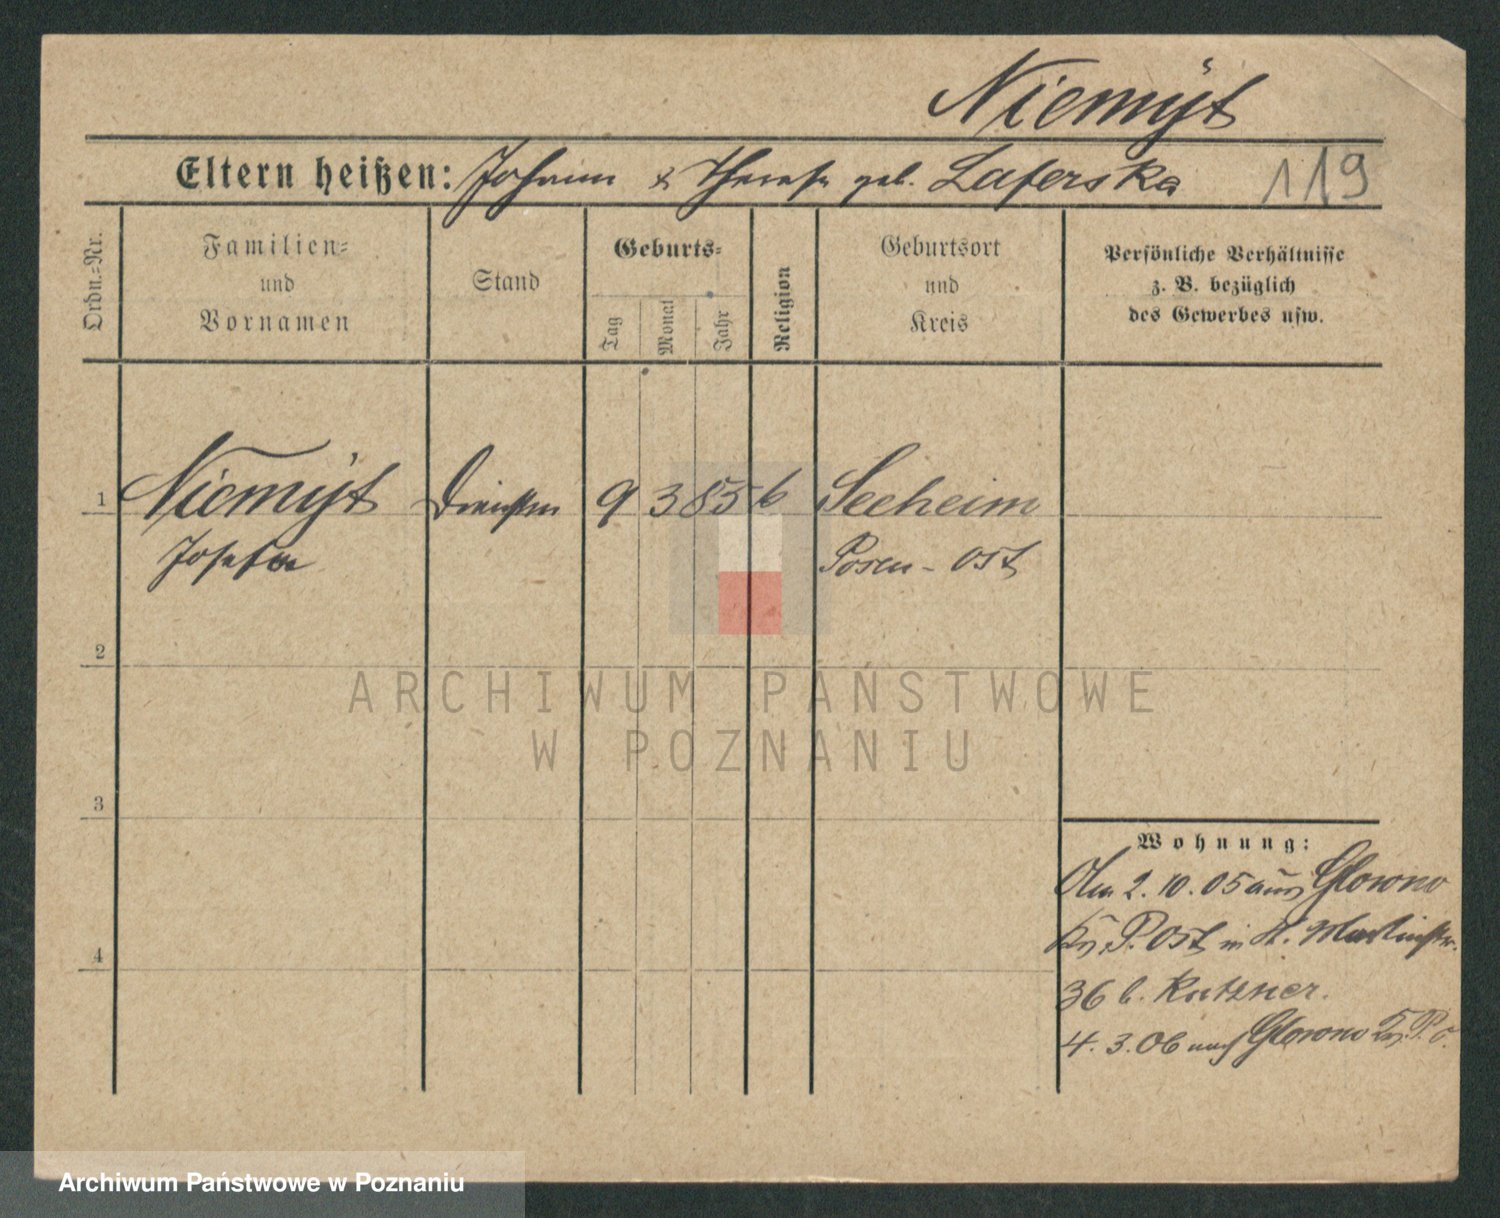 Niemyt
Eltern heißen: Johann & Therese geb. Laferska 119
Ordn.=Nr.
Familien=
und
Vornamen
Stand
Geburts=
Tag
Monat
Jahr
Religion
Geburtsort
und
Kreis
Persönliche Verhältnisse
z. B. bezüglich
des Gewerbes usw.
1 Niemyt 9 3 85 k Seeheim
Josefa Posen - Ost
2
3
4
Wohnung:
Am 2.10.05 aus Glowno
Kr. P. Ost in St. Martinstr.
36 b. Kutzner.
4.3.06 nach Glowno Kr. P. O.
ARCHIWUM PAŃSTWOWE
W POZNANIU
Archiwum Państwowe w Poznaniu